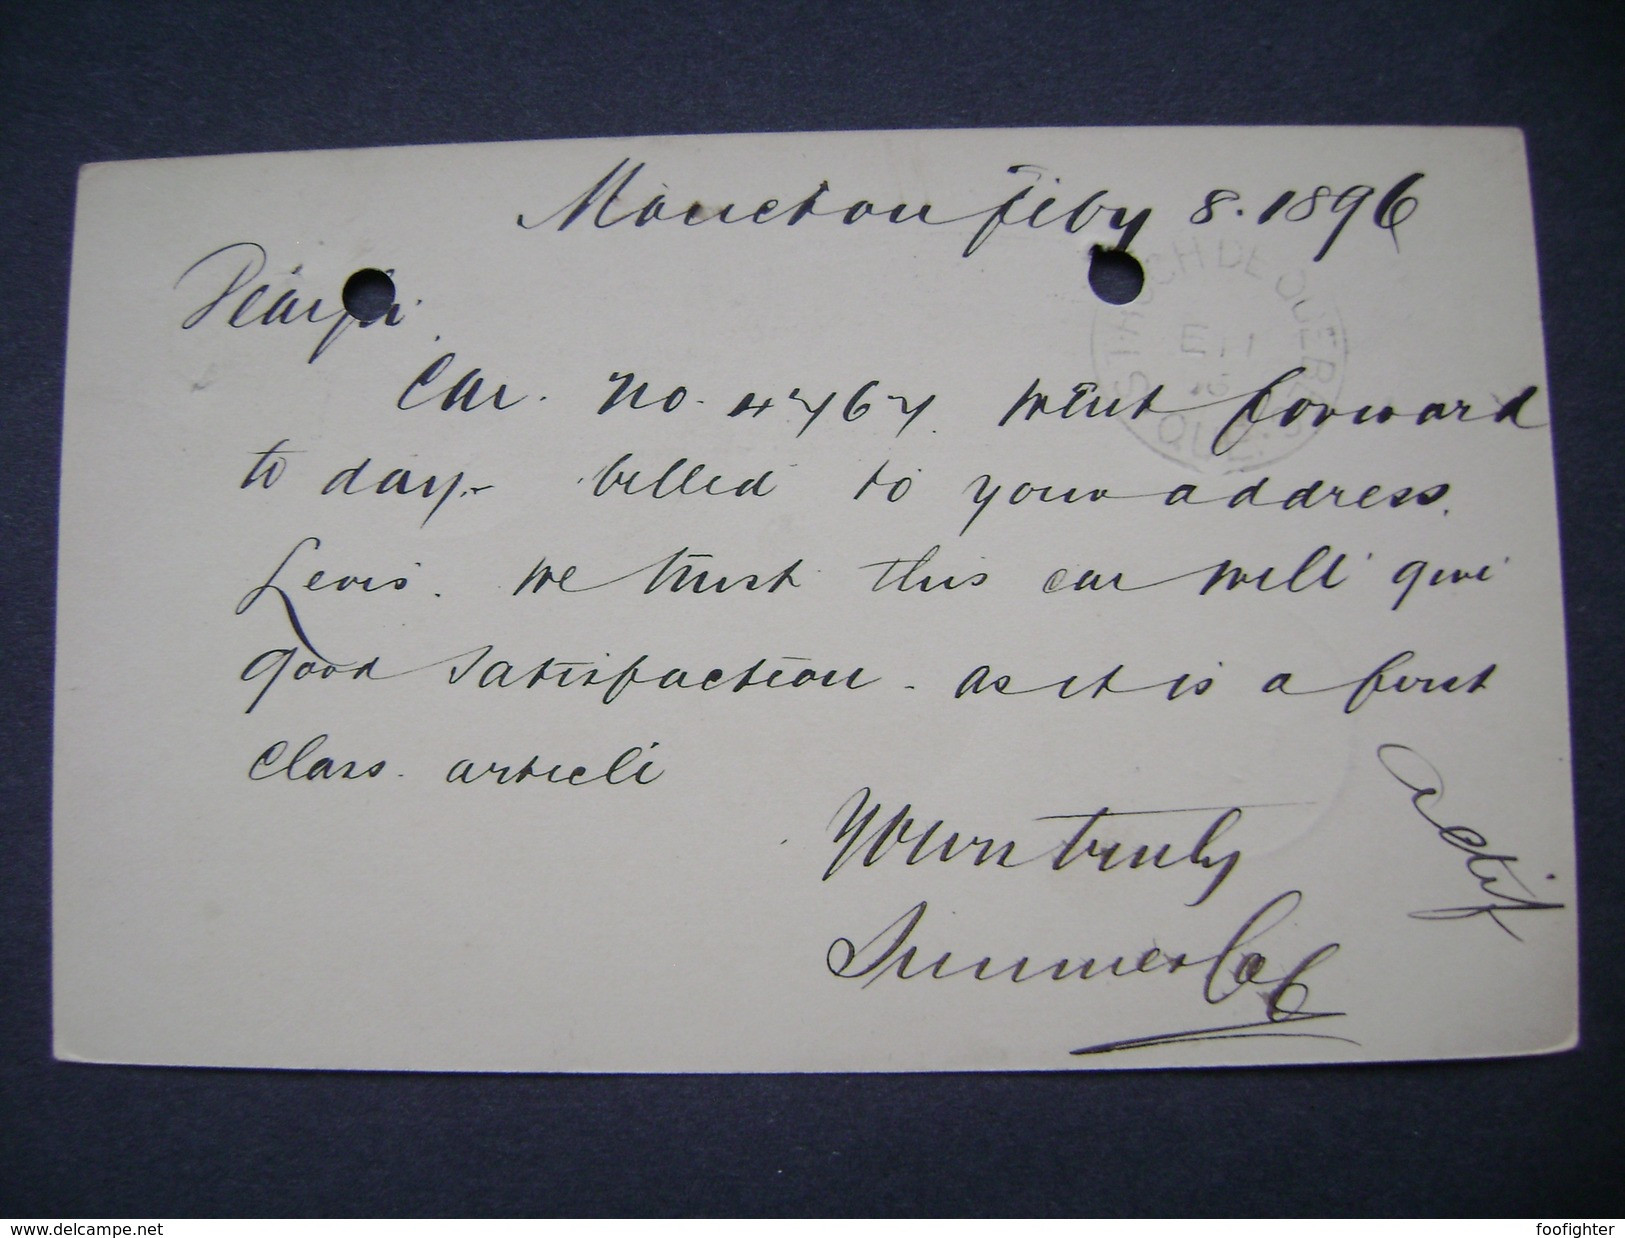 Moncton Feby 8. 1896
Car. No. 4767 went forward
to day - billed to your address.
Levis. We trust this car will give
good satisfaction - as it is a first
class. article
Yours truly
Sumner Co
ST ROCH DE QUEBEC
QUE.
delcampe.net
foofighter